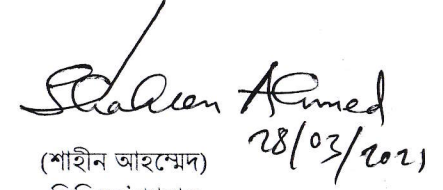 Shaheen Ahmed
28/03/2021
(শাহীন আহম্মেদ)